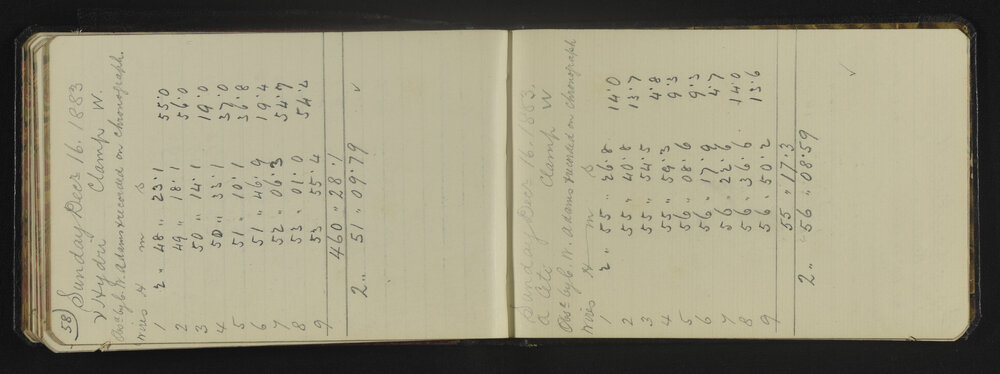 58) Sunday Decr 16. 1883
ν Hydri Clamp W.
Obsd by C. W. Adams & recorded on chronograph.
Wires H m s
1 2 " 48 " 23.1 55.0
2 49 " 18.1 56.0
3 50 " 14.1 19.0
4 50 " 33.1 37.0
5 51 " 10.1 36.8
6 51 " 46.9 19.4
7 52 " 06.3 54.7
8 53 " 01.0 54.4
9 53 55.4
460 " 28.1
2 " 51 " 09.79 ✓
Sunday Decr 16. 1883.
α Ceti Clamp W
Obsd by C. W. Adams & recorded on chronograph
Wires H m s
1 2 " 55 " 26.8 14.0
2 55 " 40.8 13.7
3 55 " 54.5 4.8
4 55 " 59.3 9.3
5 56 " 08.6 9.3
6 56 " 17.9 4.7
7 56 " 22.6 14.0
8 56 " 36.6 13.6
9 56 " 50.2
55 " 17.3
2 " 56 " 08.59 ✓